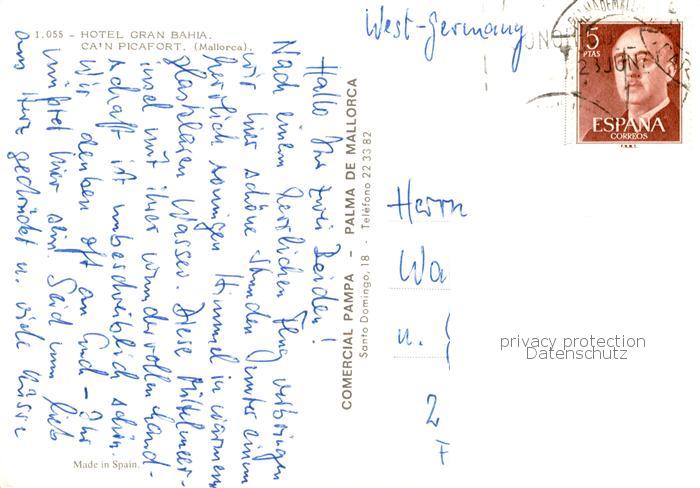 1.055 - HOTEL GRAN BAHIA.
CA'N PICAFORT. (Mallorca).
Hallo Ihr zwei Beiden!
Nach einem herrlichen Flug verbringen
wir hier schöne Stunden unter einem
herrlich sonnigen Himmel in warmem
glasklaren Wasser. Diese Mittelmeer-
insel mit ihrer wundervollen Land-
schaft ist unbeschreiblich schön.
Wir denken oft an Euch - Ihr
müsstet hier sein. Seid nun lieb
ans Herz gedrückt u. viele Küsse
Made in Spain.
COMERCIAL PAMPA - PALMA DE MALLORCA
Santo Domingo, 18 - Teléfono 22 33 82
West-Germany
PALMA DE MALLORCA
JUN
23 JUN
5
PTAS
ESPAÑA
CORREOS
F.N.M.T.
Herrn
Wa
u.
2
privacy protection
Datenschutz